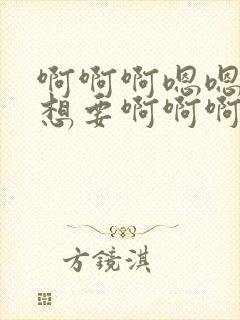 啊啊啊嗯嗯
想要啊啊啊
方鏡淇